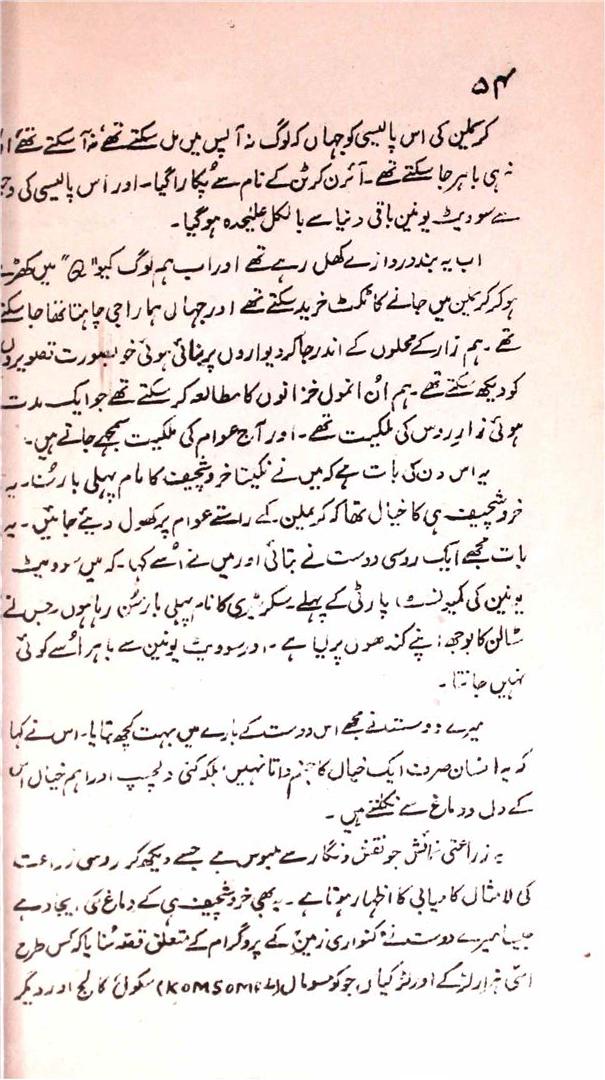 ۵۴
کریملین کی اس پالیسی کو جہاں کہ لوگ نہ آپس میں مل سکتے تھے نہ آ سکتے تھے
نہ ہی باہر جا سکتے تھے۔ آئرن کرٹن کے نام سے پکارا گیا۔ اور اس پالیسی کی
سے سوویٹ یونین باقی دنیا سے بالکل علیحدہ ہو گیا۔
اب یہ بند دروازے کھل رہے تھے اور اب ہم لوگ کیو "Q" میں کھڑے
ہو کر کریملین میں جانے کا ٹکٹ خرید سکتے تھے اور جہاں ہمارا جی چاہتا تھا جا سکتے
تھے۔ ہم زار کے محلوں کے اندر جا کر دیواروں پر بنائی ہوئی خوبصورت تصویروں
کو دیکھ سکتے تھے۔ ہم اُن انمول خزانوں کا مطالعہ کر سکتے تھے جو ایک مدت
ہوئی زارِ روس کی ملکیت تھے۔ اور آج عوام کی ملکیت سمجھے جاتے ہیں۔
یہ اس دن کی بات ہے کہ میں نے نکیتا خروشچیف کا نام پہلی بار سُنا۔ یہ
خروشچیف ہی کا خیال تھا کہ کریملین کے راستے عوام پر کھول دیئے جائیں۔ یہ
بات مجھے ایک روسی دوست نے بتائی اور میں نے اُسے کہا۔ کہ میں سوویٹ
یونین کی کمیونسٹ پارٹی کے پہلے سکرٹری کا نام پہلی بار سُن رہا ہوں۔ جس نے
سٹالن کا بوجھ اپنے کندھوں پر لیا ہے۔ اور سوویٹ یونین سے باہر اُسے کوئی
نہیں جانتا۔
میرے دوست نے مجھے اس دوست کے بارے میں بہت کچھ بتایا۔ اس نے کہا
کہ یہ انسان صرف ایک خیال کا جنم داتا نہیں بلکہ کئی دلچسپ اور اہم خیال اس
کے دل و دماغ سے نکلتے ہیں۔
یہ زراعتی نمائش جو نقش و نگار سے ملبوس ہے جسے دیکھ کر روسی زراعت
کی لامثال کامیابی کا اظہار ہوتا ہے۔ یہ بھی خروشچیف ہی کے دماغ کی ایجاد ہے
میرے دوست نے کنواری زمین کے پروگرام کے متعلق قصہ سُنایا کہ کس طرح
اسّی ہزار لڑکے اور لڑکیاں جو کومسومال (KOMSOMAL) سکول کالج اور دیگر